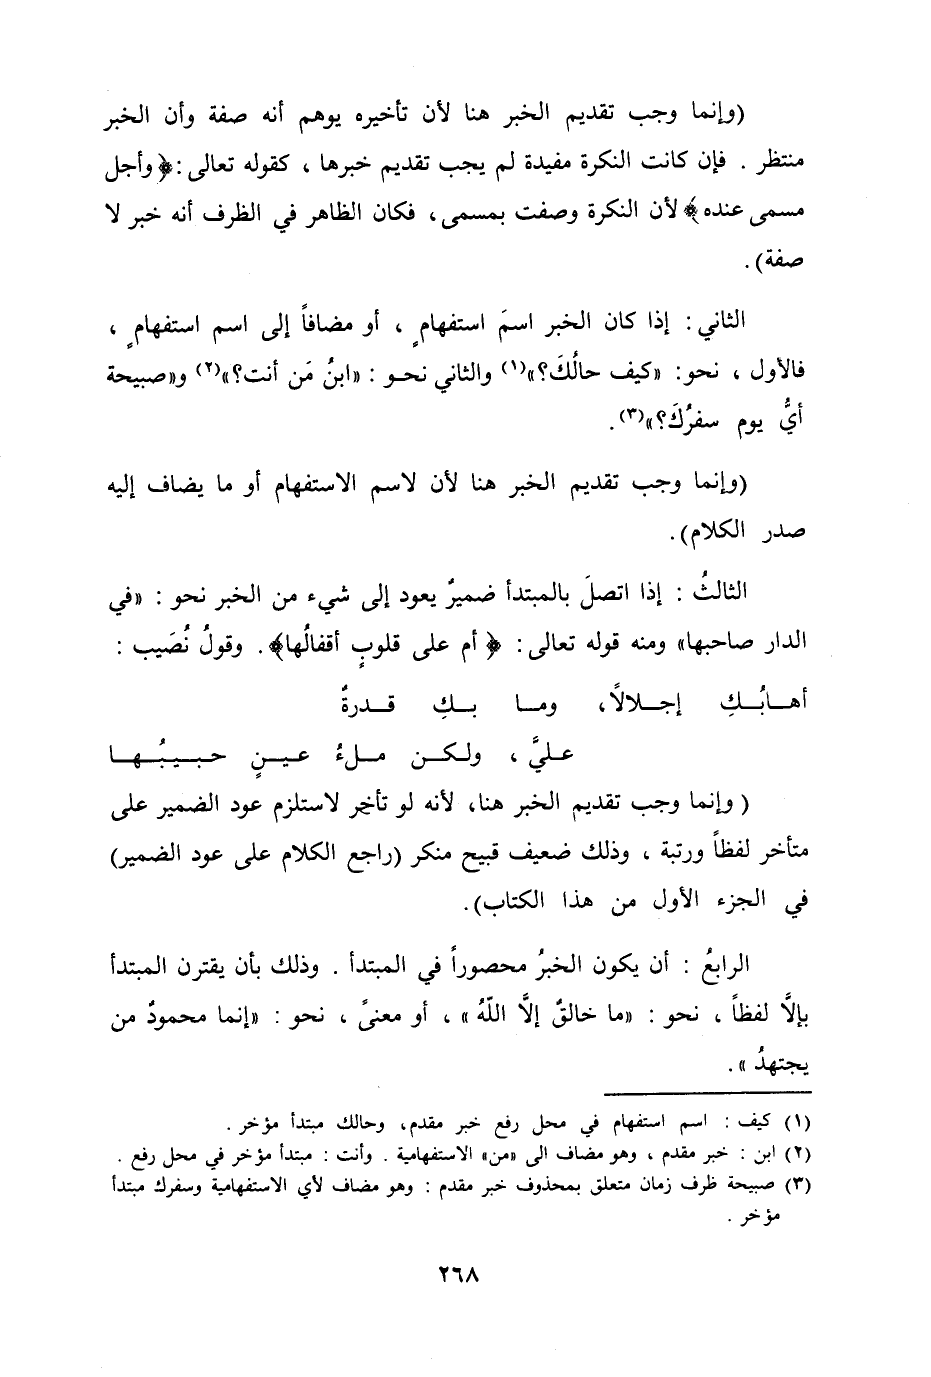 (وإنما وجب تقديم الخبر هنا لأن تأخيره يوهم أنه صفة وأن الخبر
منتظر . فإن كانت النكرة مفيدة لم يجب تقديم خبرها ، كقوله تعالى :﴿ وأجل
مسمى عنده﴾ لأن النكرة وصفت بمسمى ، فكان الظاهر في الظرف أنه خبر لا
صفة) .
الثاني : إذا كان الخبر اسمَ استفهامٍ ، أو مضافاً إلى اسم استفهامٍ ،
فالأول ، نحو: «كيف حالُكَ؟»(١) والثاني نحو : «ابنُ مَن أنت؟»(٢) و«صبيحة
أيُّ يوم سفرُكَ؟»(٣).
(وإنما وجب تقديم الخبر هنا لأن لاسم الاستفهام أو ما يضاف إليه
صدر الكلام).
الثالثُ : إذا اتصلَ بالمبتدأ ضميرٌ يعود إلى شيء من الخبر نحو : «في
الدار صاحبها» ومنه قوله تعالى : ﴿ أم على قلوبٍ أقفالُها﴾. وقولُ نُصَيب :
أهـابُـكِ إجـلالاً، ومـا بـكِ قـدرةٌ
عـليَّ ، ولـكـن مـلءُ عـيـنٍ حـبـيـبُـهـا
( وإنما وجب تقديم الخبر هنا، لأنه لو تأخر لاستلزم عود الضمير على
متأخر لفظاً ورتبة ، وذلك ضعيف قبيح منكر (راجع الكلام على عود الضمير)
في الجزء الأول من هذا الكتاب).
الرابعُ : أن يكون الخبرُ محصوراً في المبتدأ . وذلك بأن يقترن المبتدأ
بإلاَّ لفظاً ، نحو : «ما خالقٌ إلاَّ اللّهُ » ، أو معنىً ، نحو : «إنما محمودٌ من
يجتهدُ ».
(١) كيف : اسم استفهام في محل رفع خبر مقدم، وحالك مبتدأ مؤخر .
(٢) ابن : خبر مقدم ، وهو مضاف الى «من» الاستفهامية . وأنت : مبتدأ مؤخر في محل رفع .
(٣) صبيحة ظرف زمان متعلق بمحذوف خبر مقدم : وهو مضاف لأي الاستفهامية وسفرك مبتدأ
مؤخر .
٢٦٨